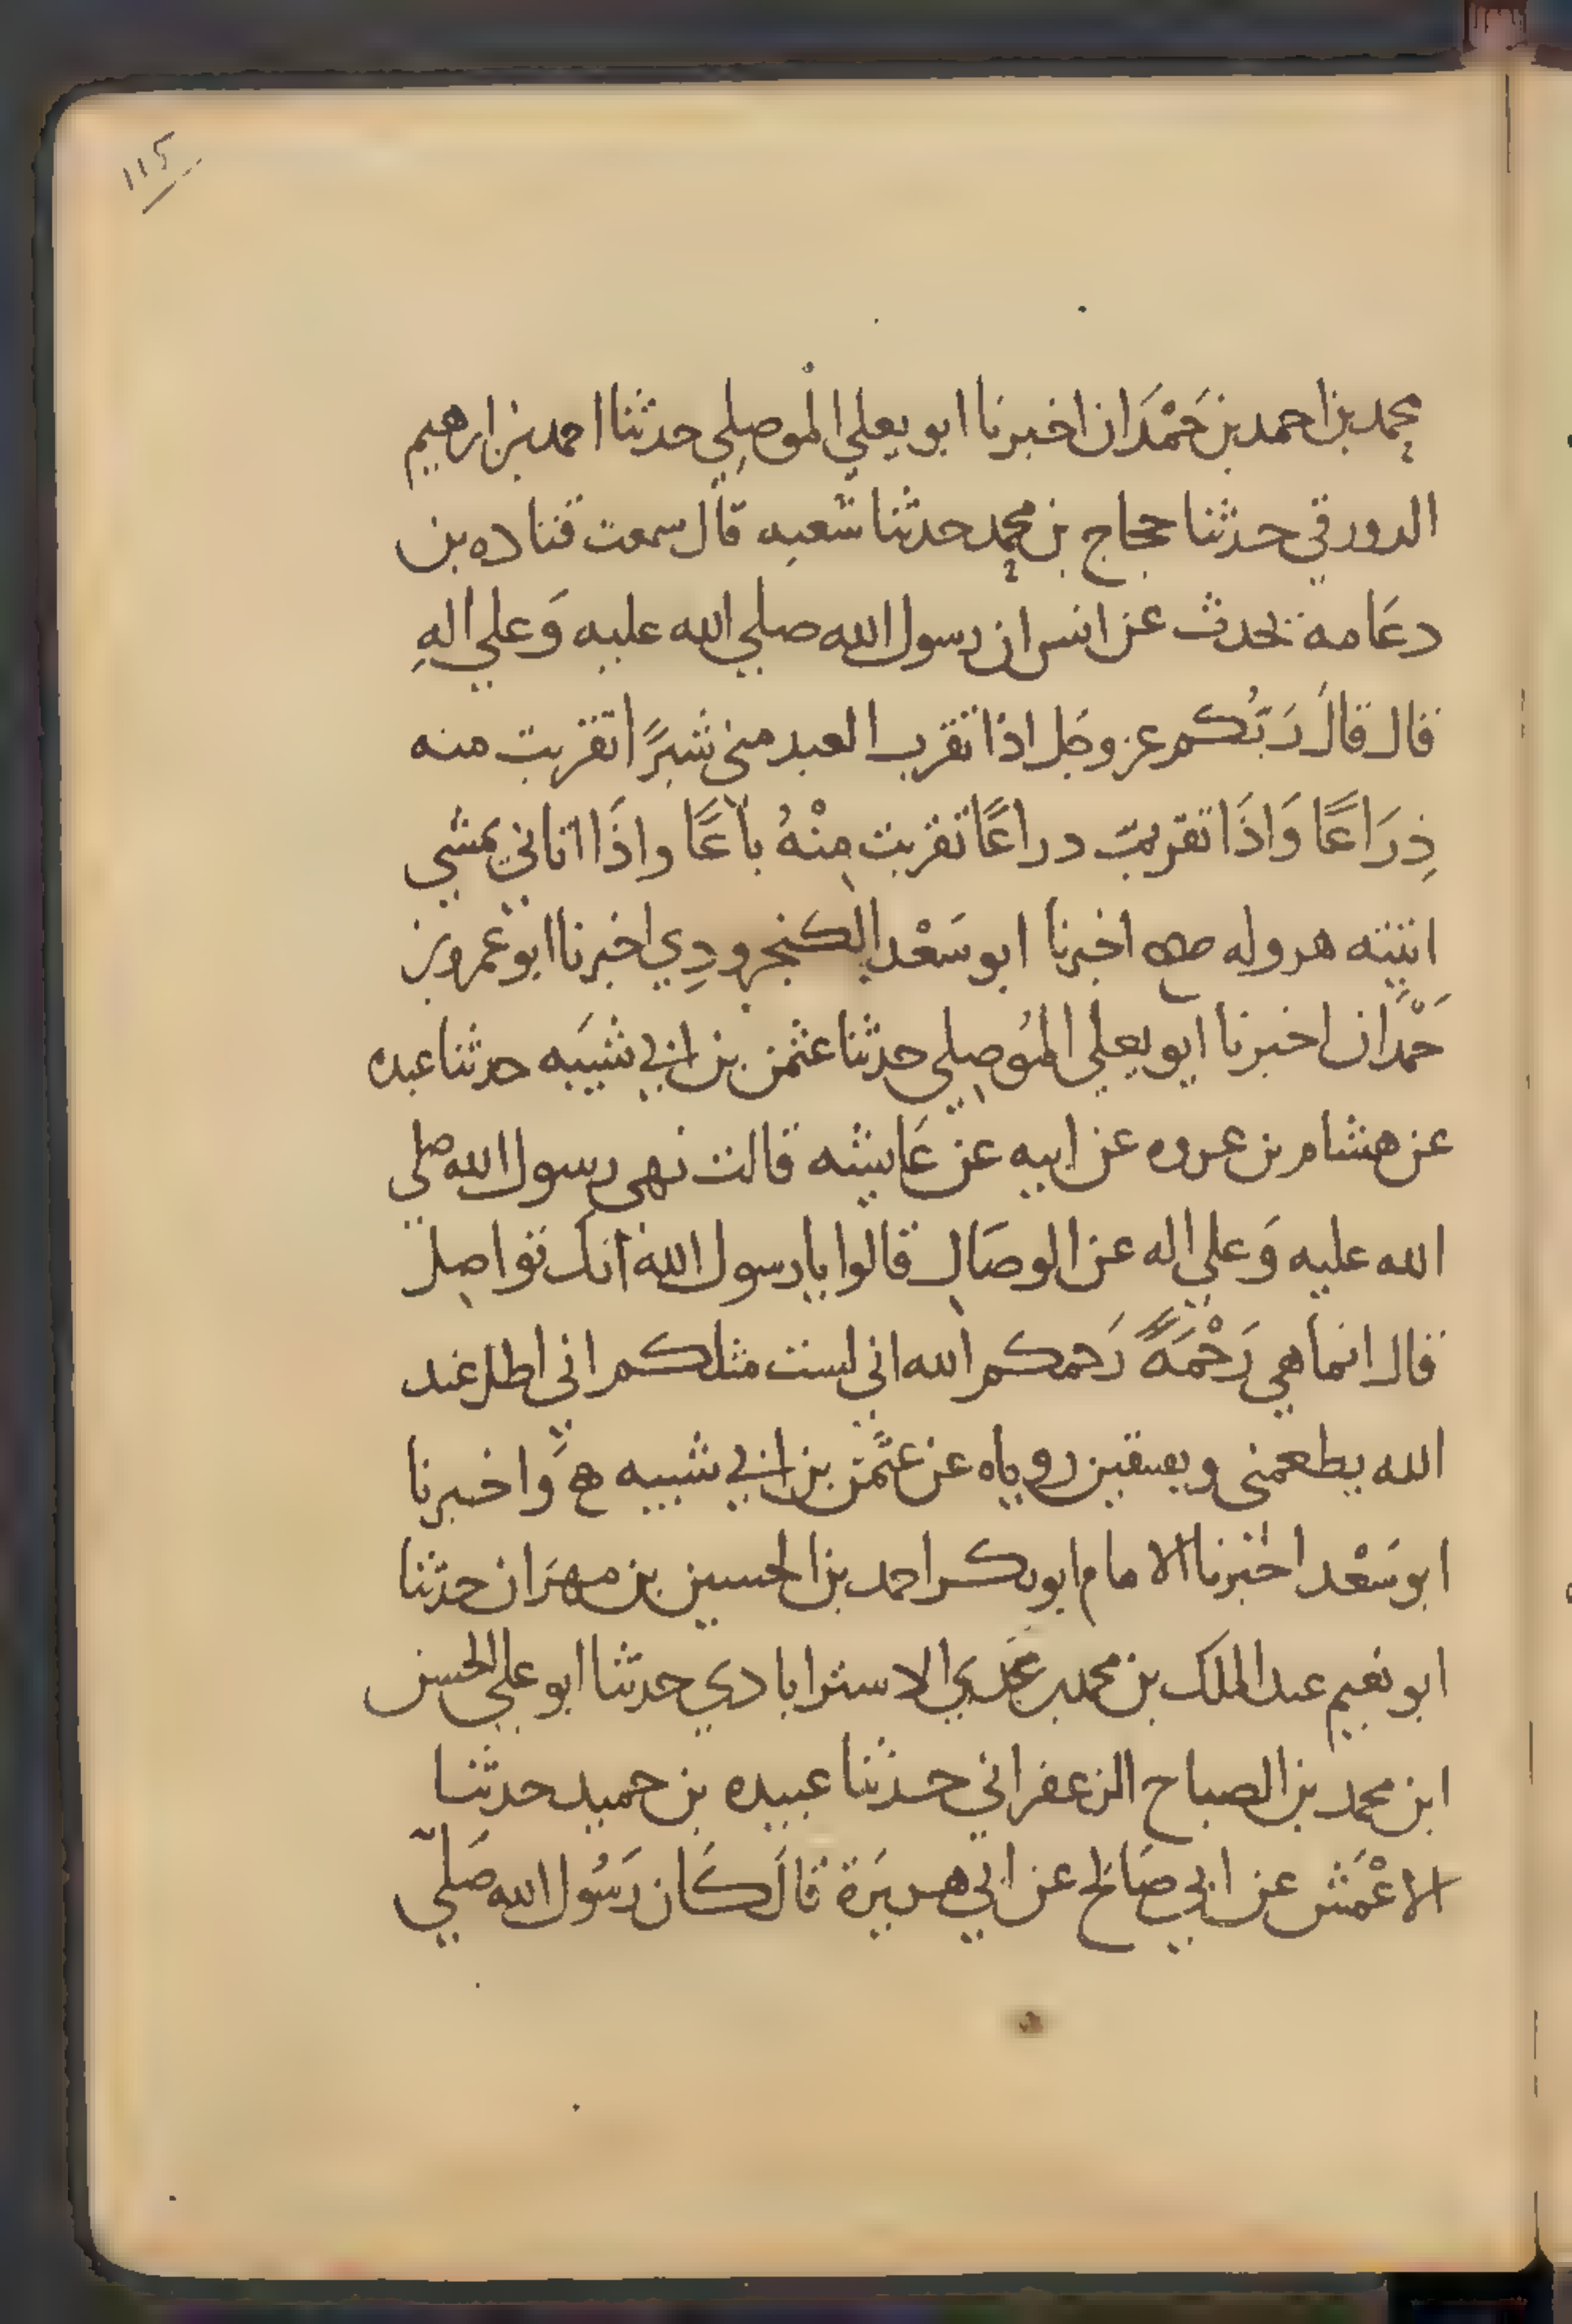 ١١٥
محمد بن احمد بن حَمْدَان اخبرنا ابو يعلي الموصِلي حدثنا احمد بن ابرهيم
الدورقي حدثنا حجاج بن محمد حدثنا شعبه قال سمعت قتاده بن
دعَامه يحدث عن انس ان رسول الله صلي الله عليه وَعلي الهِ
قال قالَ رَبّكُم عز وجَل اذا تقرب العبد مني شبرًا تقربت منه
ذِرَاعًا وَاذَا تقربَ دراعًا تقربت مِنْهُ باعًا واذَا اتاني يمشي
اتيته هروله صح اخبرنا ابو سَعْد الكنجرودِي اخبرنا ابو عمرو بن
حَمْدَان اخبرنا ابو يعلي الموُصِلي حدثنا عثمن بن ابي شيبَه حدثنا عبده
عن هشام بن عروه عن ابيه عن عَايشه قالت نهى رسول الله صلي
الله عليه وَعلي اله عن الوصَالِ قالوا يا رسول الله انك تواصِل
قال انما هي رَحْمَةً رَحمكم الله اني لست مثلكم اني اظل عند
الله يطعمني ويسقين روياه عن عثمَن بن ابي شيبه ح وَاخبرنا
ابو سَعْد اخبرنا الامام ابو بكر احمد بن الحسين بن مهرَان حدثنا
ابو نعيم عبد الملك بن محمد بن عَدِي الاسترابادي حدثنا ابو علي الحسن
ابن محمد بن الصباح الزعفراني حدثنا عبيده بن حميد حدثنا
الاعْمَش عن ابي صَالح عن ابي هريَرة قالَ كَان رَسُول الله صَلي